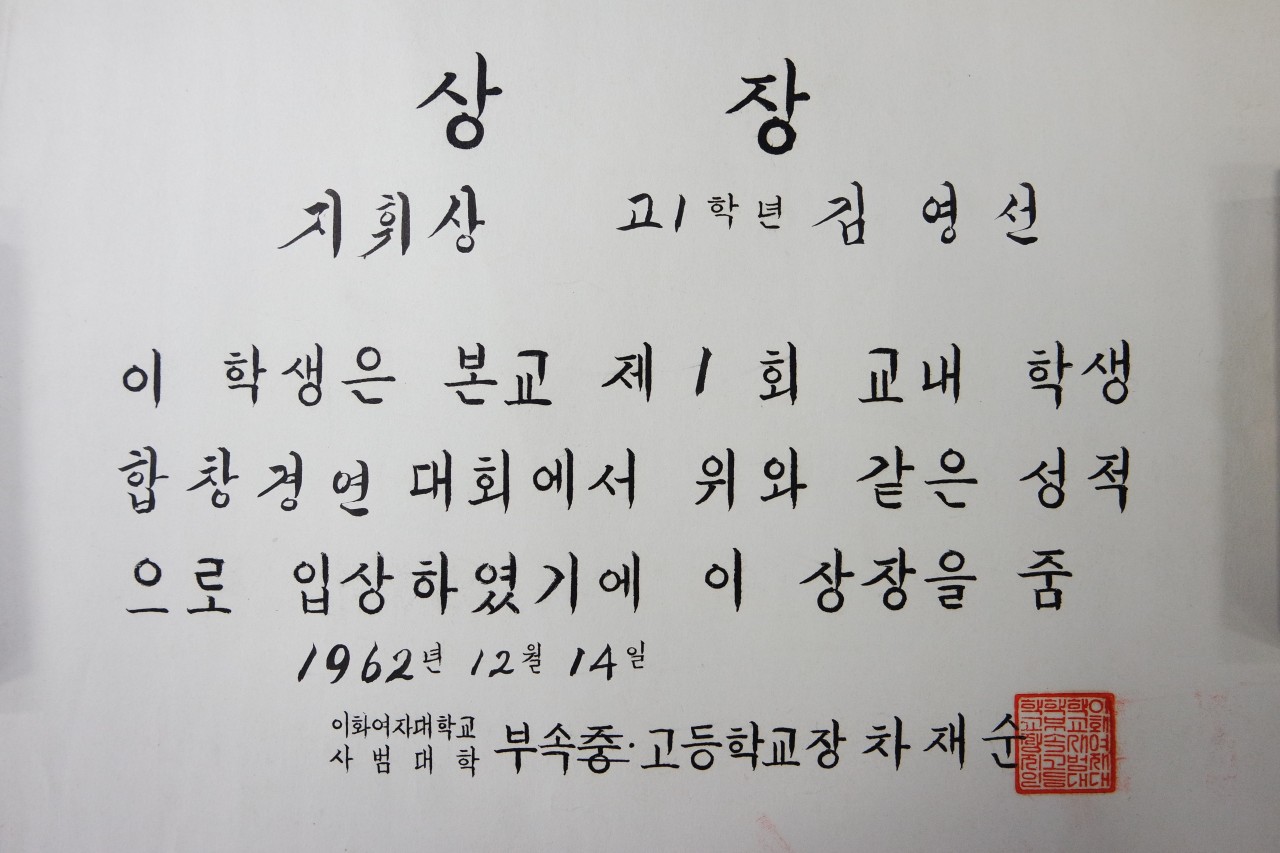 상 장
지휘상 고1학년 김영선
이 학생은 본교 제1회 교내 학생
합창경연대회에서 위와 같은 성적
으로 입상하였기에 이 상장을 줌
1962년 12월 14일
이화여자대학교
사범대학
부속중·고등학교장 차재순